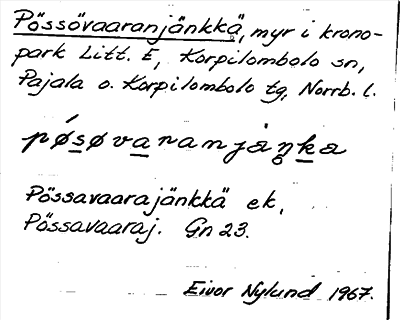 Pössövaaranjänkkä, myr i krono-
park Litt. E, Korpilombolo sn,
Pajala o. Korpilombolo tg, Norrb. l.
pǿsøvaranjäŋka
Pössavaarajänkkä ek,
Pössavaaraj. Gn 23.
Eivor Nylund 1967.